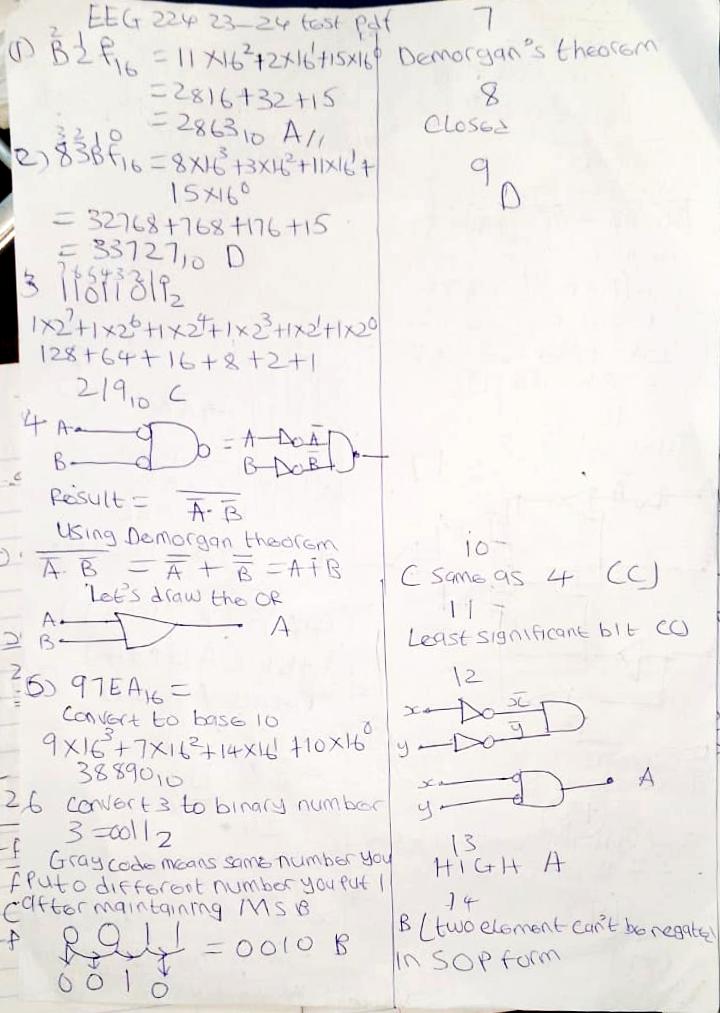 EEG 224 23-24 test pdf
(1) B2f₁₆ = 11×16²+2×16¹+15×16⁰
= 2816+32+15
= 2863₁₀ A//
2) 83Bf₁₆ = 8×16³+3×16²+11×16¹+
15×16⁰
= 32768+768+176+15
= 33727₁₀ D
3 11011011₂
1×2⁷+1×2⁶+1×2⁴+1×2³+1×2¹+1×2⁰
128+64+16+8+2+1
219₁₀ C
4 A B = A Ā B B̅
Result = \overline{Ā·B̅}
Using Demorgan theorem
\overline{Ā·B̅} = \overline{Ā} + \overline{B̅} = A+B
Let's draw the OR
A B A
5) 97EA₁₆ =
Convert to base 10
9×16³+7×16²+14×16¹+10×16⁰
38890₁₀
26 convert 3 to binary number
3 = 0011₂
Gray code means same number you
put 0 different number you put 1
after maintaining MSB
0 0 1 1 = 0010 B
0 0 1 0
7
Demorgan's theorem
8
Closed
9
D
10
C same as 4 (C)
11
Least significant bit (C)
12
x x̅
y y̅
x A
y
13
HIGH A
14
B (two element can't be negated
in SOP form